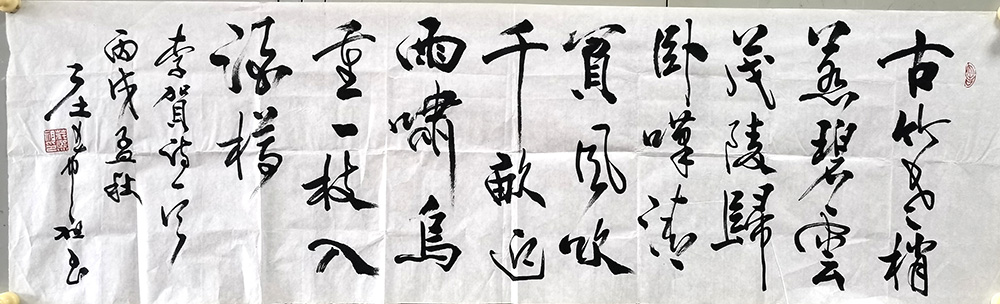 古竹老梢
惹碧雲
茂陵歸
卧嘆清
貧風吹
千畝迎
雨嘯鳥
重一枝入
酒樽
李賀詩一首
丙戌孟秋
書